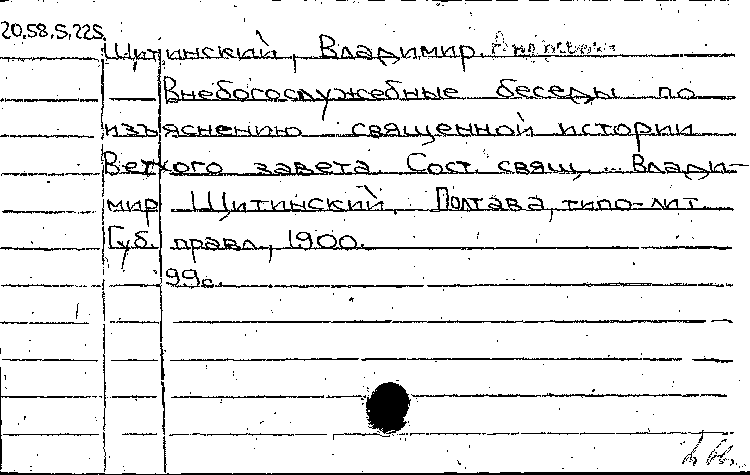 20.58.5.225
Щитинский, Владимир.
Внебогослужебные беседы по
изъяснению священной истории
Ветхого завета. Сост. свящ. ... Влади-
мир Щитинский. Полтава, типо-лит.
Губ. правл., 1900.
99с.